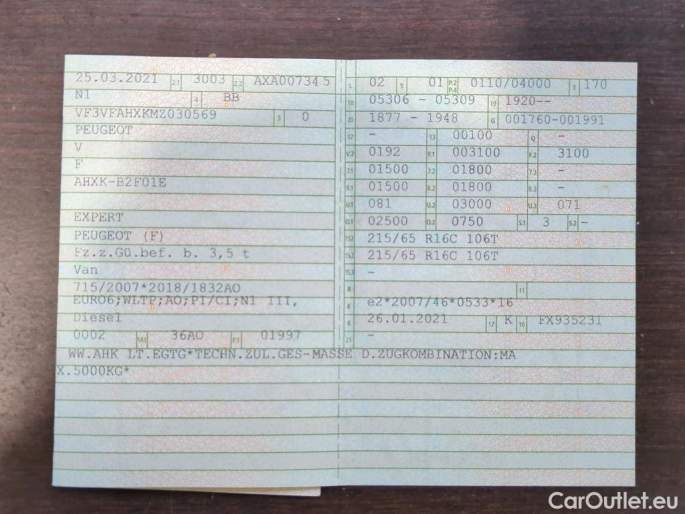 25.03.2021 2.1 3003 2.2 AXA007345
N1 4 BB
VF3VFAHXKMZ030569 3 0
PEUGEOT
V
F
AHXK-B2F01E
EXPERT
PEUGEOT (F)
Fz.z.Gü.bef. b. 3,5 t
Van
715/2007*2018/1832AO
EURO6;WLTP;AO;PI/CI;N1 III,
Diesel
0002 36AO 01997
L 02 9 01 P.2 P.4 0110/04000 T 170
18 05306 - 05309 19 1920--
20 1877 - 1948 G 001760-001991
12 - 13 00100 Q -
V.7 0192 F.1 003100 F.2 3100
7.1 01500 7.2 01800 7.3 -
8.1 01500 8.2 01800 8.3 -
U.1 081 U.2 03000 U.3 071
O.1 02500 O.2 0750 S.1 3 S.2 -
15.1 215/65 R16C 106T
15.2 215/65 R16C 106T
15.3 -
R 11
K e2*2007/46*0533*16
6 26.01.2021 17 K 16 FX935231
21 -
WW.AHK LT.EGTG*TECHN.ZUL.GES-MASSE D.ZUGKOMBINATION:MA
X.5000KG*
CarOutlet.eu